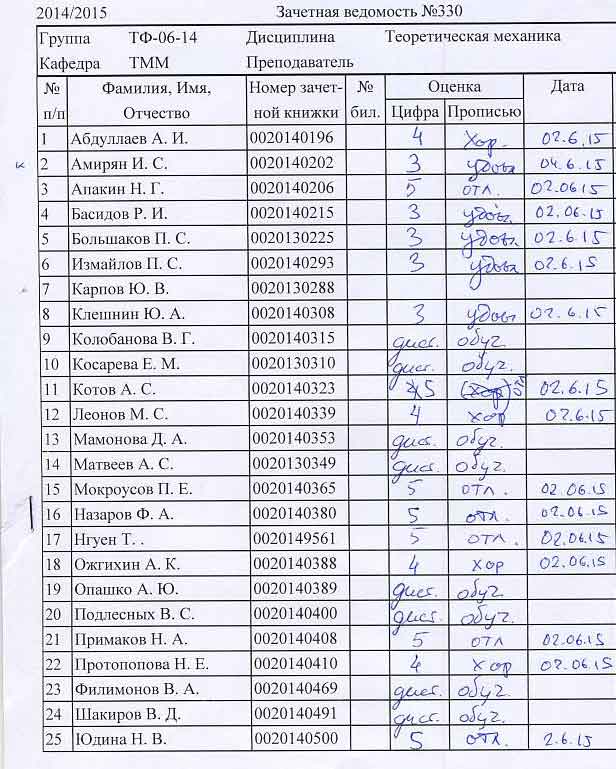 2014/2015 Зачетная ведомость №330
Группа ТФ-06-14 Дисциплина Теоретическая механика
Кафедра ТММ Преподаватель
№ Фамилия, Имя, Номер зачет- № Оценка Дата
п/п Отчество ной книжки бил. Цифра Прописью
1 Абдуллаев А. И. 0020140196 4 хор. 02.6.15
2 Амирян И. С. 0020140202 3 удовл 04.6.15
3 Апакин Н. Г. 0020140206 5 отл. 02.06.15
4 Басидов Р. И. 0020140215 3 удовл 02.06.15
5 Большаков П. С. 0020130225 3 удовл 02.6.15
6 Измайлов П. С. 0020140293 3 удовл 02.6.15
7 Карпов Ю. В. 0020130288
8 Клешнин Ю. А. 0020140308 3 удовл 02.6.15
9 Колобанова В. Г. 0020140315 дист. обуч.
10 Косарева Е. М. 0020130310 дист. обуч.
11 Котов А. С. 0020140323 5 (хор) отл 02.6.15
12 Леонов М. С. 0020140339 4 хор 02.6.15
13 Мамонова Д. А. 0020140353 дист. обуч.
14 Матвеев А. С. 0020130349 дист. обуч.
15 Мокроусов П. Е. 0020140365 5 отл. 02.06.15
16 Назаров Ф. А. 0020140380 5 отл. 02.06.15
17 Нгуен Т. . 0020149561 5 отл. 02.06.15
18 Ожгихин А. К. 0020140388 4 хор 02.06.15
19 Опашко А. Ю. 0020140389 дист. обуч.
20 Подлесных В. С. 0020140400 дист. обуч.
21 Примаков Н. А. 0020140408 5 отл 02.06.15
22 Протопопова Н. Е. 0020140410 4 хор 02.06.15
23 Филимонов В. А. 0020140469 дист. обуч.
24 Шакиров В. Д. 0020140491 дист. обуч.
25 Юдина Н. В. 0020140500 5 отл. 2.6.15